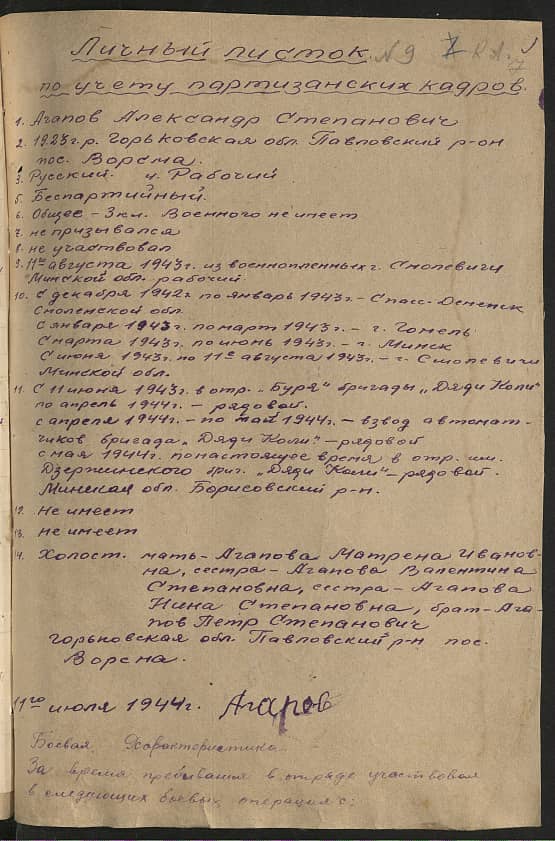 Личный листок N 9 7
по учету партизанских кадров.
1. Агапов Александр Степанович
2. 1923 г.р. Горьковская обл. Павловский р-он
пос. Ворсма.
3. Русский. 4. Рабочий
5. Беспартийный.
6. Общее – 3 кл. Военного не имеет
7. не призывался
8. не участвовал
9. 11го августа 1943г. из военнопленных г. Смолевичи
Минской обл. рабочий
10. С декабря 1942г. по январь 1943г. – Спасс-Деменск
Смоленской обл.
С января 1943г. по март 1943г. – г. Гомель
С марта 1943г. по июнь 1943г. – г. Минск
С июня 1943г. по 11е августа 1943г. – г. Смолевичи
Минской обл.
11. С 11 июня 1943г. в отр. „Буря" бригады „Дяди Коли"
по апрель 1944г. – рядовой.
с апреля 1944г. – по май 1944г. – взвод автомат-
чиков бригада „Дяди Коли" – рядовой
с мая 1944г. по настоящее время в отр. им.
Дзержинского бриг. „Дяди Коли" – рядовой.
Минская обл. Борисовский р-н.
12. Не имеет
13. не имеет
14. Холост. мать – Агапова Матрена Иванов-
на, сестра – Агапова Валентина
Степановна, сестра – Агапова
Нина Степановна, брат – Ага-
пов Петр Степанович
Горьковская обл. Павловский р-н пос.
Ворсна.
11го июля 1944г. Агапов
Боевая Характеристика
За время пребывания в отряде участвовал
в следующих боевых операциях: